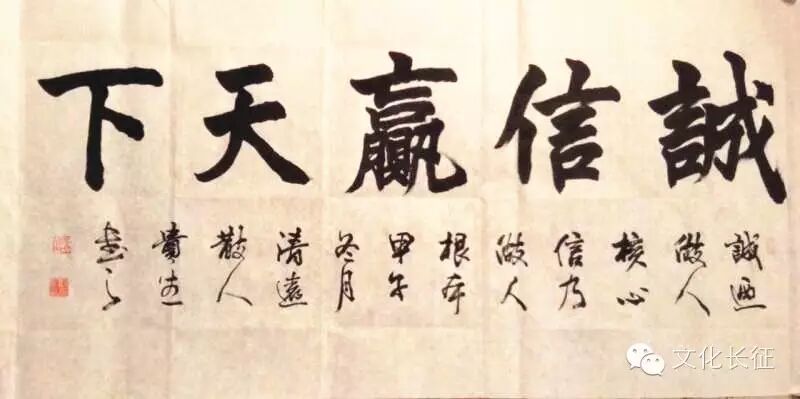 誠信贏天下
誠迺
做人
核心
信为
做人
根本
甲午
冬月
清遠
散人
貴
書之
文化长征